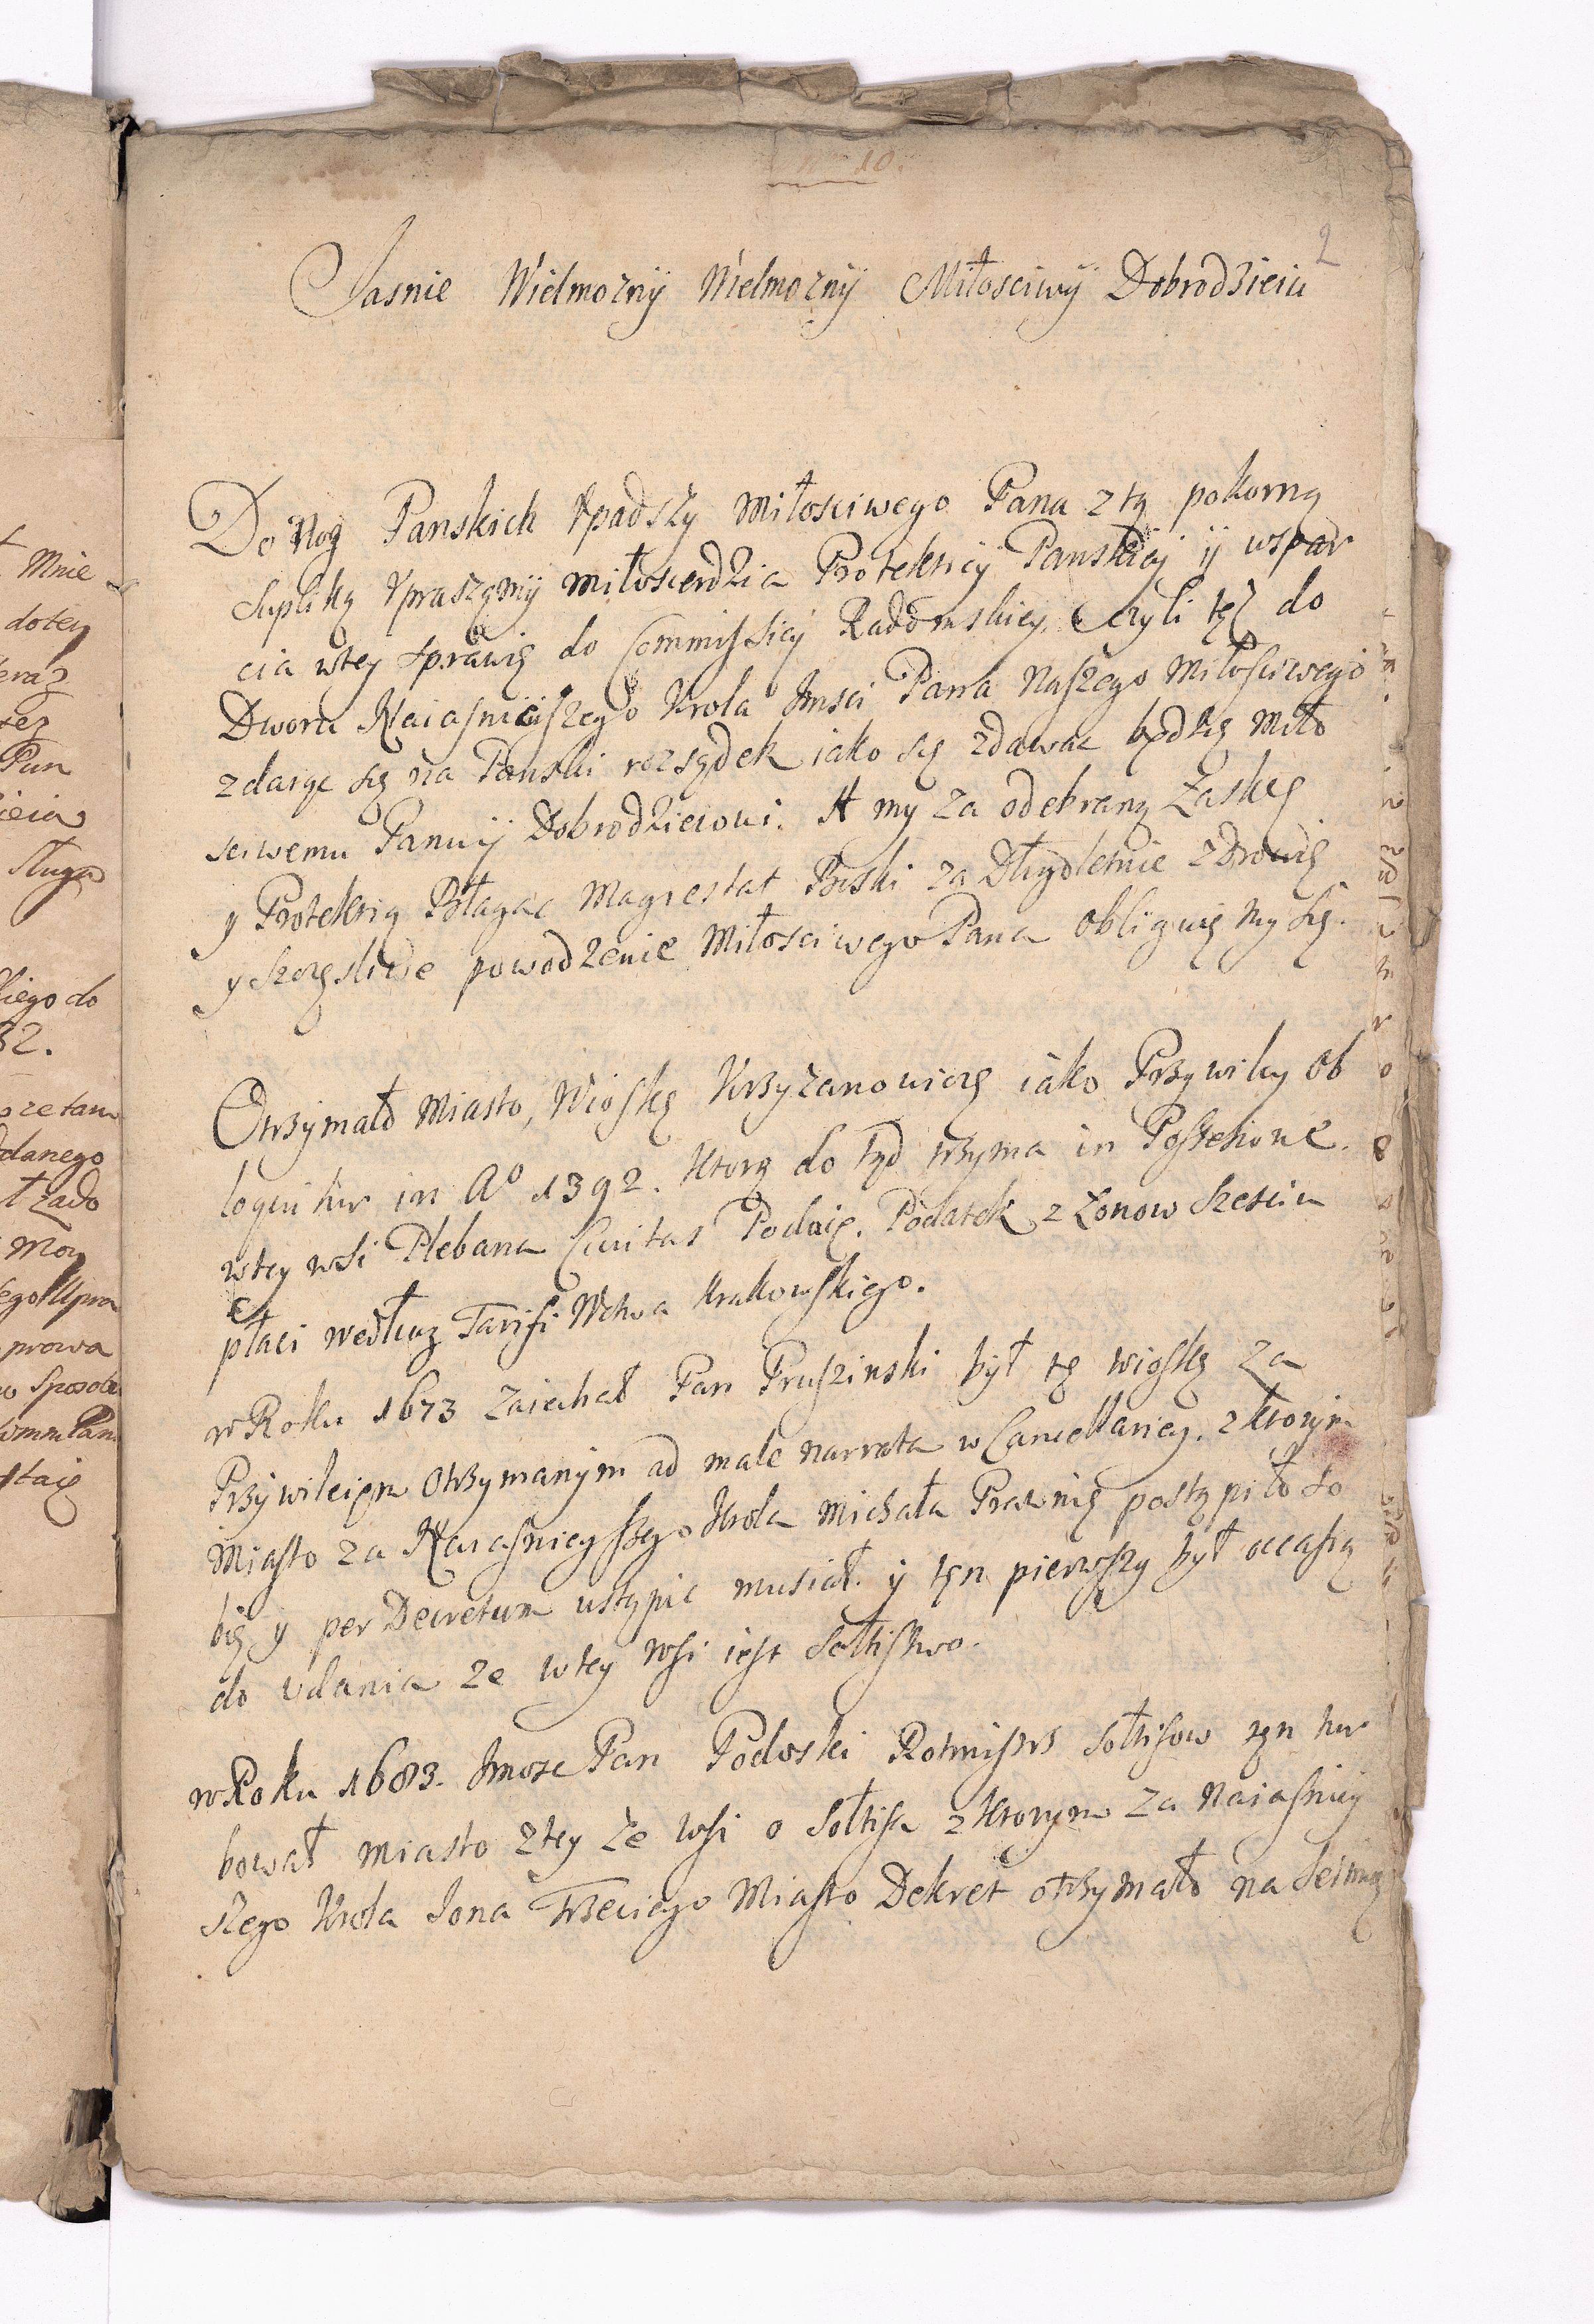 2
Jasnie Wielmozny Wielmozny Miłosciwy Dobrodzieiu
Do Nog Panskich Upadszy Miłosciwego Pana z tą pokorną
Supliką Upraszamy miłosierdzia Protekcÿi Panskiej ÿ wspar
cia wtey Sprawię do Commissiey Radomskiey, Czyli tęż do
Dworu Naiasnieiszego Krola Jmsci Pana Naszego Miłosciwego
zdaiąc się na Panski rozsądek iako się zdawac będzię Miło
sciwemu Panuÿ Dobrodzieiowi. A my za odebraną Łaskę
y Protekcią Błagac Magiestat Boski za Długoletnie zdrowię
y szczęsliwe powodzenie Miłosciwego Pana obliguię my się.
Otrzymało Miasto, Wioskę Krzyzanowicę iako Przywiley ob
loquitur in Ao 1392. Ktorą do tąd trzyma in Possesione.
wtey wsi Plebana Civitas Podaię. Podatek z Łonow szesciu
płaci według Tariffi Wchwa Krakowskiego.
w Roku 1673 zaiechał Pan Pruszinski był tę wioskę za
Przywileięm Otrzymanym ad male narrata w Cancellariey. z ktorym
Miasto za Naiasnieyszego Krola Michała Prawnię postąpiło so
bię y per Decretum ustąpic musiał. ÿ tęn pierwszy był occasią
do udania ze wtey wsi iest Sołtistwo.
w Roku 1683. Jmosc Pan Podoski Rotmistrz sołtisow tęn tur
bował Miasto z tey ze wsi o Sołtisa z ktorym za Naiasniey
szego Krola Jona Trzeciego Miasto Dekret otrzymało na Seimię
Mnie
dotey
Pan
Sługa
kiego do
32.
danego
prowa
Sposob